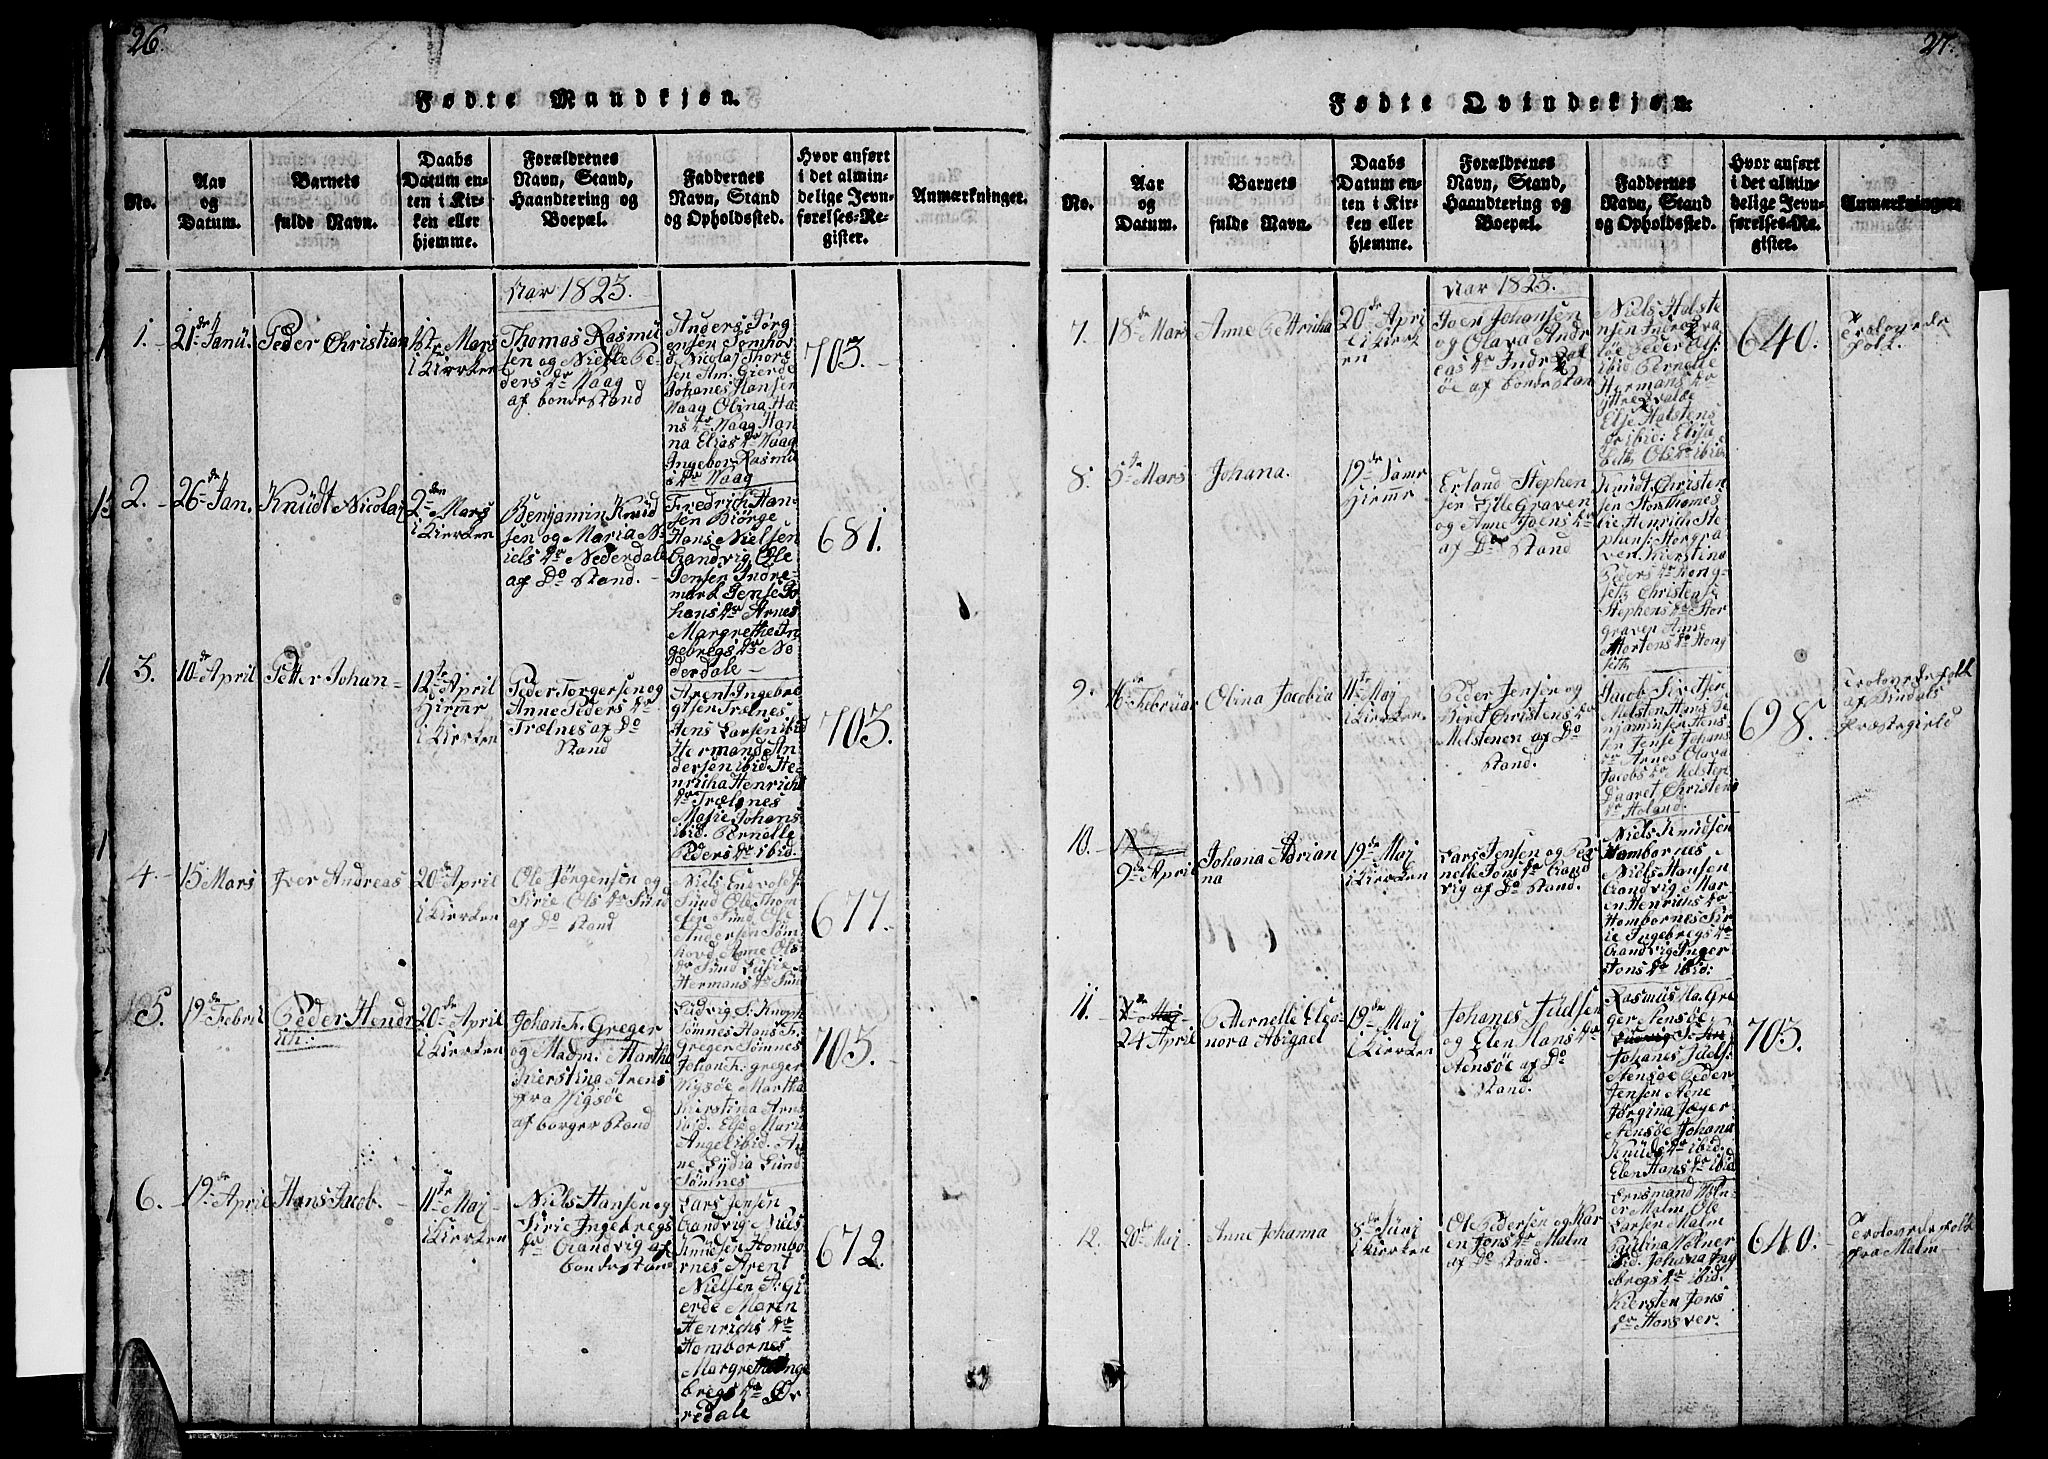 26.
Fødte Mandkjøn.
No.
Aar
og
Datum.
Barnets
fulde Navn.
Daabs
Datum en-
ten i Kir-
ken eller
hjemme.
Forældrenes
Navn, Stand,
Haandtering og
Boepæl.
Faddernes
Navn, Stand
og Opholdssted.
Hvor anført
i det almin-
delige Jevn-
førelses-Re-
gister.
Anmærkninger.
Aar 1823.
1.
21de Janu.
Peder Christian
1ste Mars
i Kircken
Thomas Rasmu
sen og Nielle Pe-
ders dr Vaag
af bondestand
Anders Jørg
ensen Sømhov
d Nicolaj Thors
sen Am: Gierde
Johanes Hansen
Vaag Olina Ha-
ns dr Vaag Han
na Elias dr Vaag
Ingebor Rasmu
s dr Vaag
703.
2.
26de Jan.
Knudt Nicolaj
2den Mars
i Kircken
Benjamin Knud
sen og Maria N-
iels dr Nederdale
af Do Stand.
Fredrich Han-
sen Biørge
Hans Nielsen
Grandvig Ole
Jensen Indre-
mark Jense Jo
hans dr Arnes
Margrethe In
gebregs dr Ne
derdale
681.
3.
10de April
Petter Johan
12te April
Hiemr
i Kircken
Peder Torgersen og
Anne Peders dr
Trælnes af Do
Stand
Arent Ingebre
gtsen Trælnes
Jens Larsen ibid
Hermand An
dersen ibid He-
nricha Henrichs
dr Trælnes
Masie Johans
ibid. Pernelle
Peders dr ibid.
703.
4.
15 Mars
Iver Andreas
20de April
i Kircken
Ole Jørgensen og
Sirie Ols dr Sund
af Do Stand
Sund Ole Thom
sen Sund Ole
Andersen Søm
hovd Anne Ols
dr Sund
Hermans dr Sund
677.
5.
19de Febru
Peder Hendr
ich:
20de April
i Kircken
Johan F. Greger
og Madm. Martha
Kierstina Arens
fra Vigsøe
af borger Stand
Ludvig S. Knoph
Sømnes Hans F.
Greger Sømnes
Johan F. greger
Vigsøe Martha
Kierstina Arns
ibid. Else Marie
Angel ibid. An
ne Lydia Lund
Sømnes
703.
6.
19de April
Hans Jacob.
11te Maj
i Kircken
Niels Hansen og
Sirie Ingebregs
dr Grandvig af
bondestand
Lars Jensen
Grandvig Niels
Knudsen Hombo
rnes Arent
Nielsen A: Gi
erde Maren
Henrichs dr
Hombornes
Margrethe Inge
bregs dr Øv
redale
672.
27.
Fødte Qvindekjøn.
No.
Aar
og
Datum.
Barnets
fulde Navn.
Daabs
Datum en-
ten i Kir-
ken eller
hjemme.
Forældrenes
Navn, Stand,
Haandtering og
Boepæl.
Faddernes
Navn, Stand
og Opholdssted.
Hvor anført
i det almin-
delige Jevn-
førelses-Re-
gister.
Anmærkninger.
Aar 1823.
7.
18de Mars
Anne Pettricha
20de Apri
i Kirck
en
Joen Johansen
og Olava Andr
eas dr Indreqval
øe af bondestan
Niels Halste
nsen Indreqva
løe
ibid Pernelle
Hermans dr
Yttreqvaløe
Else Halstens
dr ibid: Elisa
beth Ols dr ibid
640.
Trolovede
folk.
8.
5te Mars
Johana.
19de Samr
Hiemr
Erland Stephen
sen Lille Graven
og Anne Joens dr
af Do Stand
Knudt Christen
sen Stor Thomes
tie Henrich Ste
phens: Storgra
ven Kierstina
Peders dr Hong-
seth Christens
Stephens dr Stor
graven Anne
Mortens dr Hong
seth
9.
16de Februar
Olina Jacobia
11te Maj
i Kircken
Peder Jensen og
Beret Christens dr
Melstenen af Do
Stand.
Jacob Sivertsen
Melsten Hans Be
njaminsen
Jense Johans
dr Arnes Olava
Jacobs dr Melsten
Baaret Christens
dr Holand.
698.
Trolovede folk
af Tindals
Præstegield
10.
9de April
Johana Adrian
na
19de Maj
i Kircken
Lars Jensen og Per
nelle Jons dr Grand
vig af Do Stand.
Niels Knudsen
Hombornes
Niels Hansen
Grandvig Mar
en Henrichs dr
Hombornes Sir
ie Ingebregs dr
Grandvig Inger
Jons dr ibid:
11.
24 April
Petternelle Eleo
nora Abigael
19de Maj
i Kircken
Johanes Juldsen
og Elen Hans dr
Stensøe af Do
Stand.
Rasmus Ha. Gre
ger Stensøe
Johanes Juels:
Stensøe Peder
Jensen
Jørgina Jæger
Stensøe Johana
Knuds dr ibid:
Elen Hans dr ibid
703.
12.
20de Maj
Anne Johanna
8de Juni
i Kircken
Ole Pedersen og Kar
en Jons dr Malm
af Do Stand.
Ernsmand Møln
er Malm Ole
Larsen Malm
Paulina Mølner
ibid. Johana Ing
ebregs dr ibid.
Kiersten Jons
dr Horsver.
640.
Trolovede folk
fra Malm